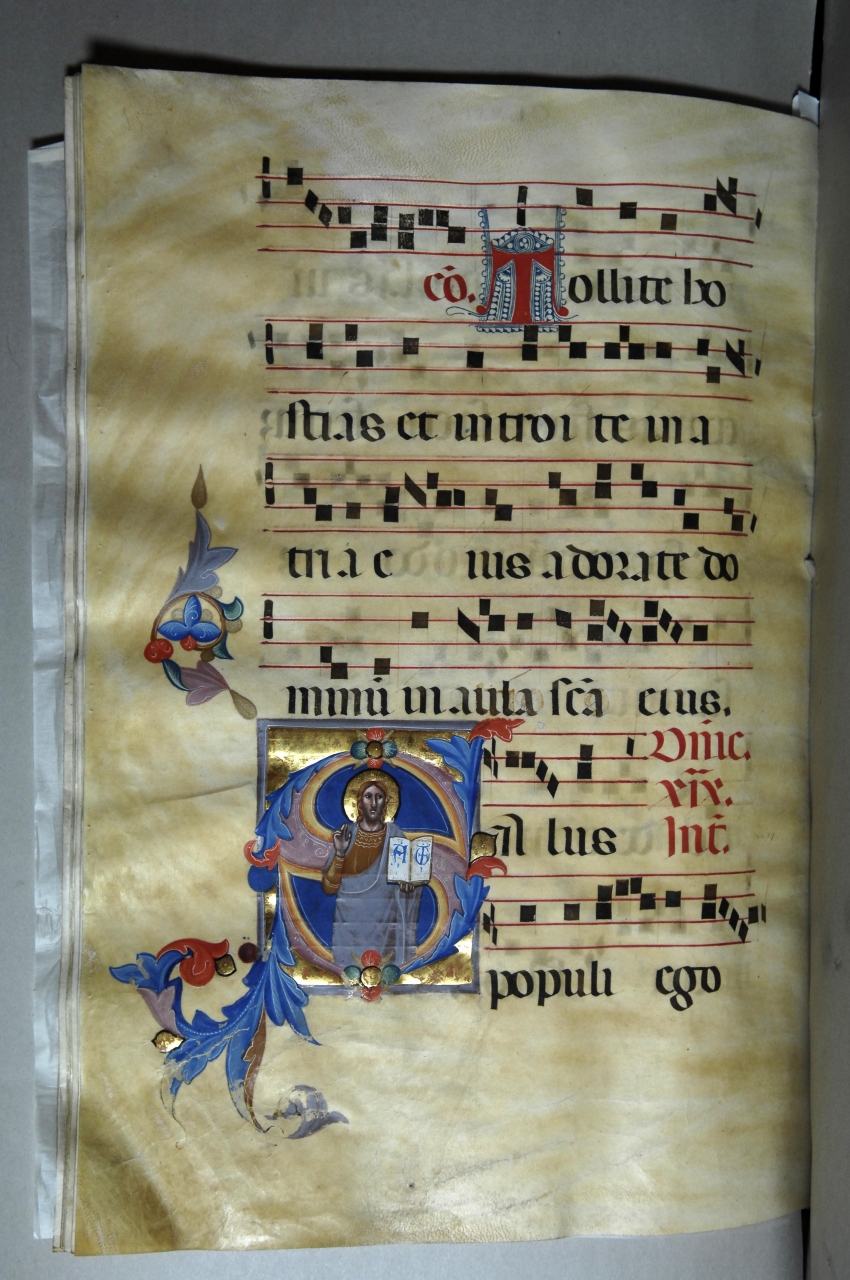 cō. Tollite ho
stias et introi te in a
tri a e ius adorate do
minū in aula scā eius.
Dn̄ic.
xix.
Sal lus Int̄.
populi ego